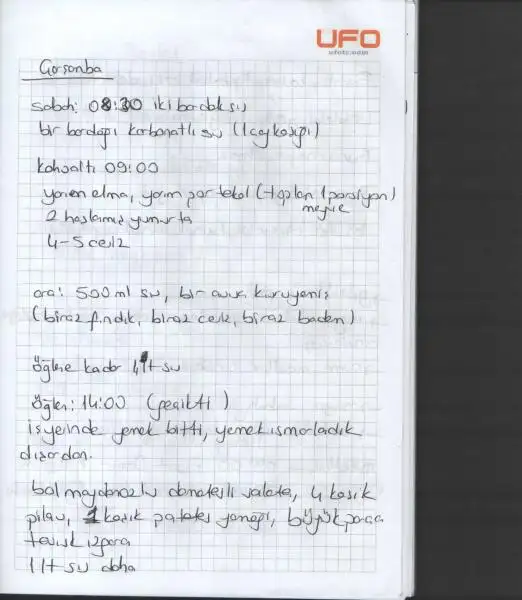 UFO
ufotr.com
Çarşamba
sabah: 08:30 iki bardak su
bir bardağı karbonatlı su (1 çay kaşığı)
kahvaltı 09:00
yarım elma, yarım portakal (toplam 1 porsiyon)
meyve
2 haşlanmış yumurta
4-5 ceviz
ara: 500 ml su, bir avuç kuruyemiş
(biraz fındık, biraz ceviz, biraz badem)
öğlene kadar 1 lt su
öğlen: 14:00 (gecikti)
işyerinde yemek bitti, yemek ısmarladık
dışardan.
bol maydanozlu domatesli salata, 4 kaşık
pilav, 1 kaşık patates yemeği, büyük parça
tavuk ızgara
1 lt su daha